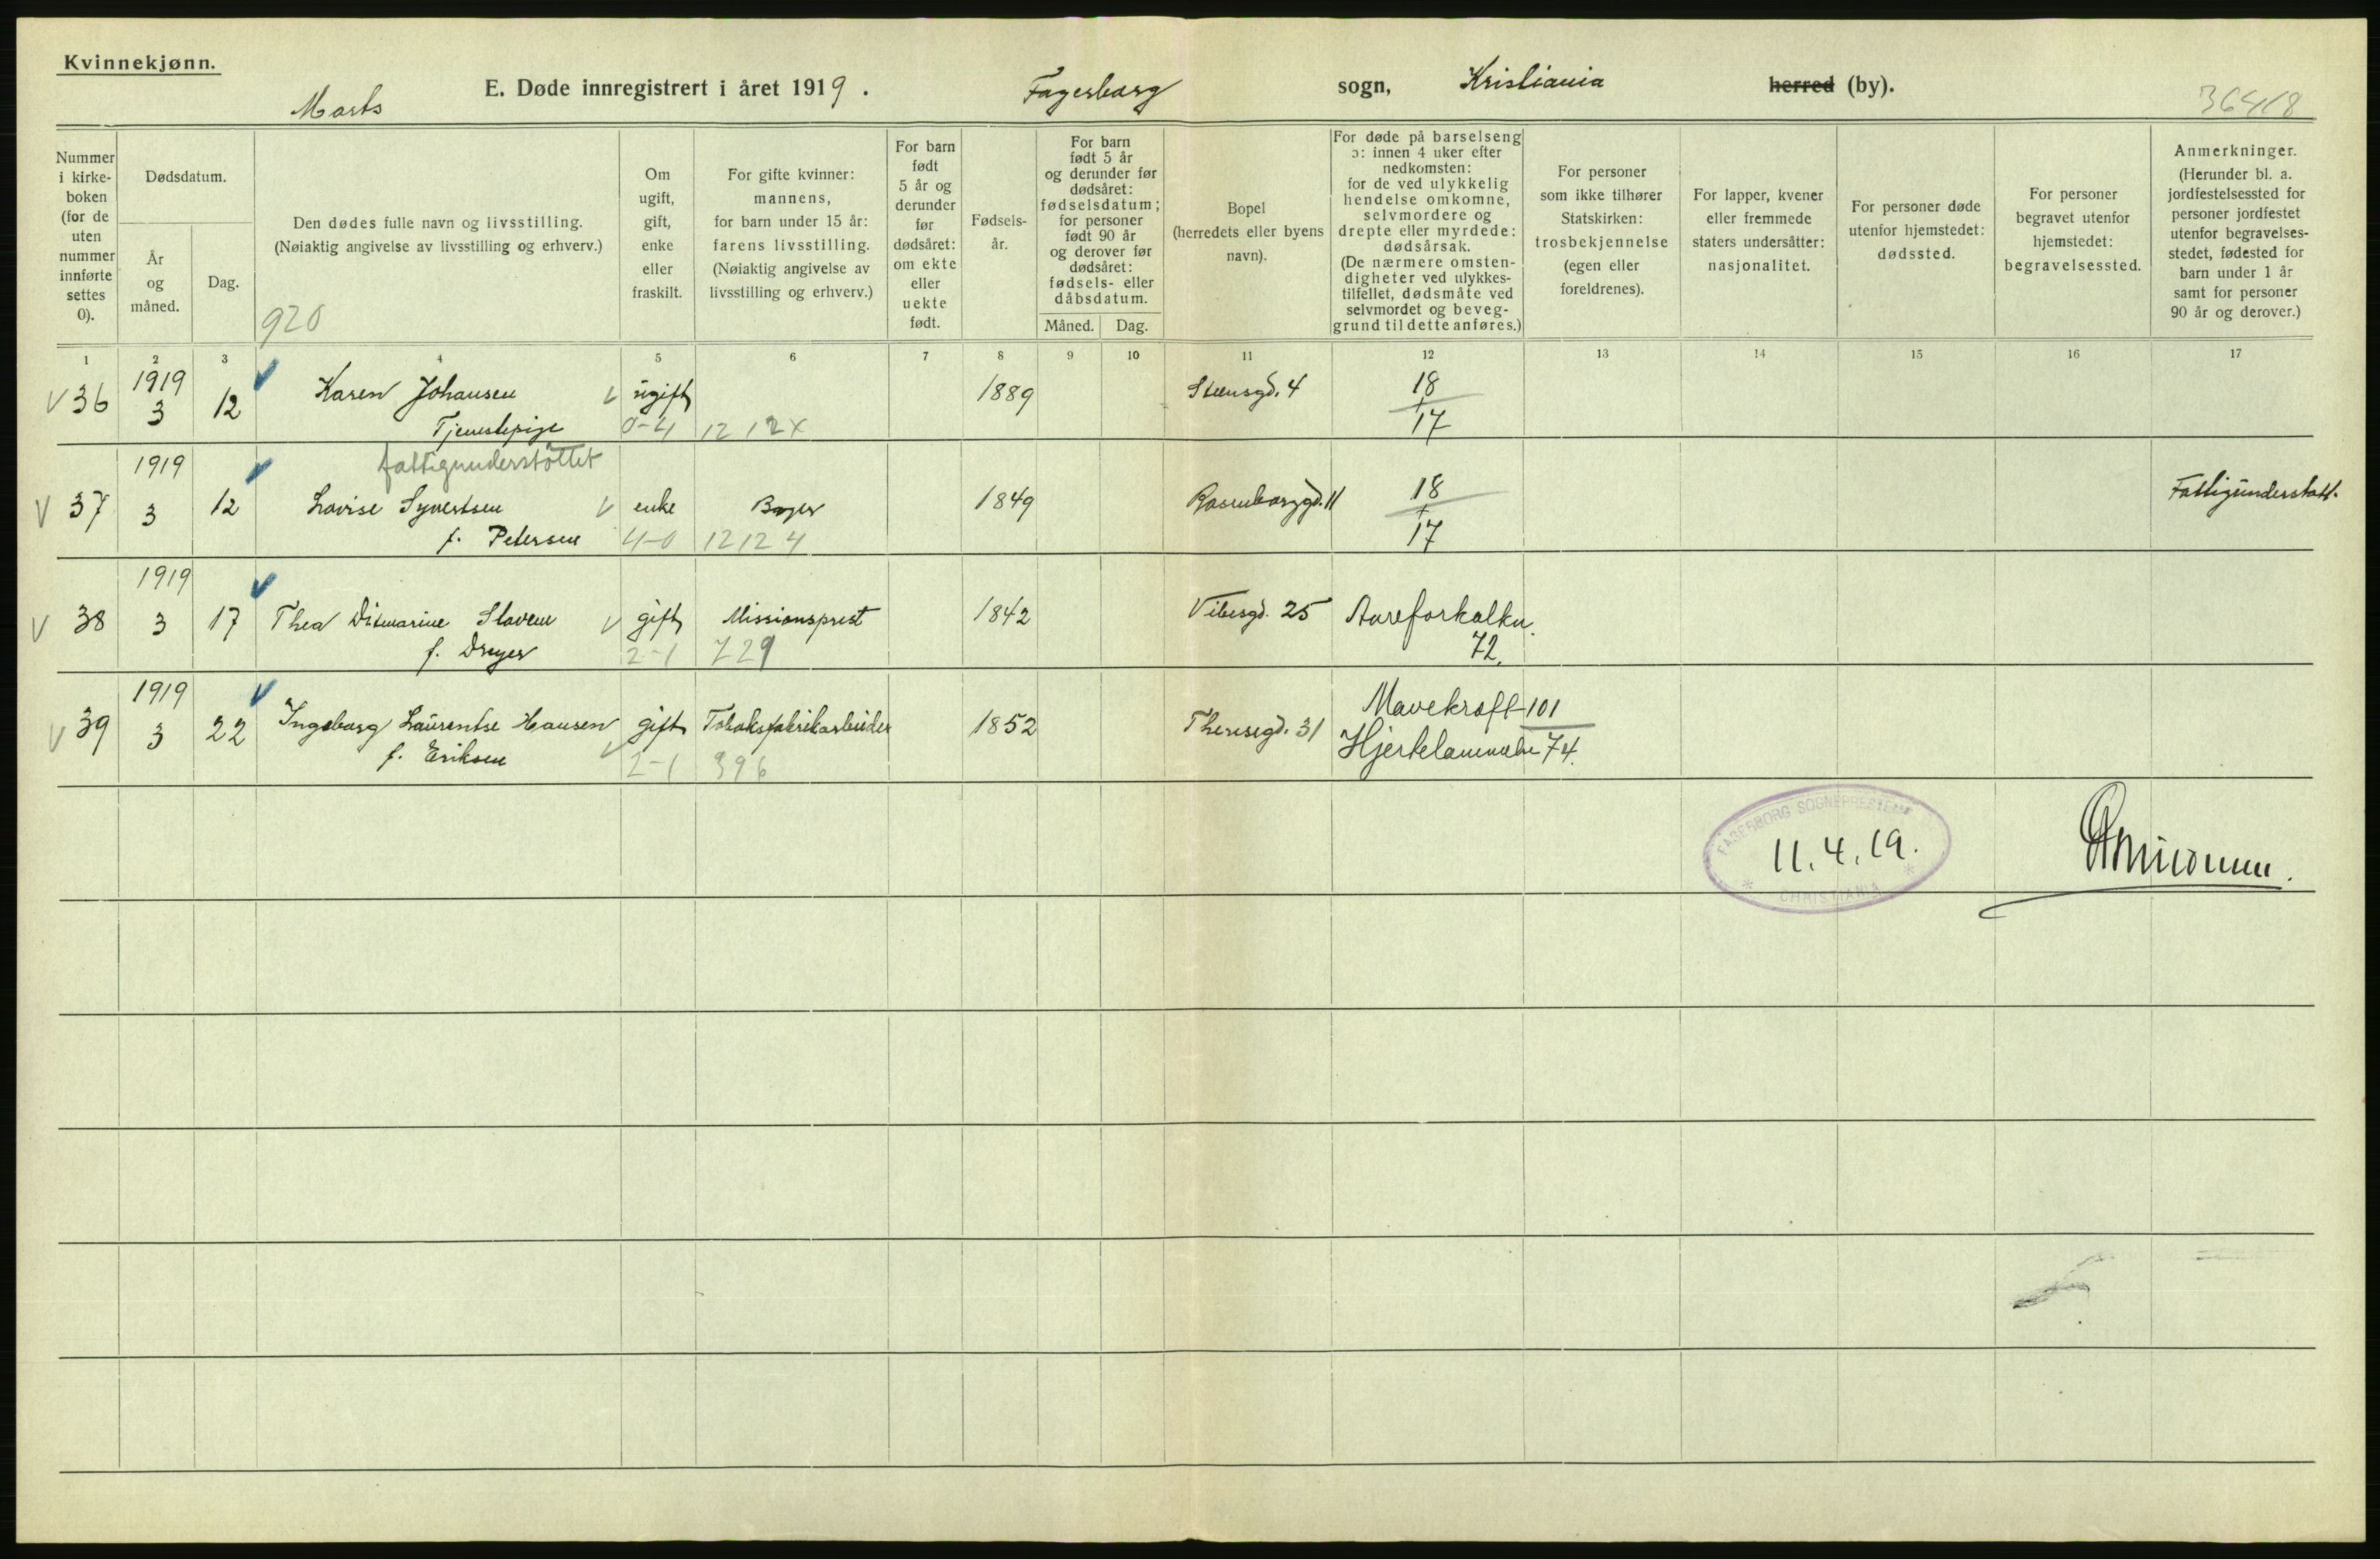 Kvinnekjønn.
E. Døde innregistrert i året 1919.
Fagerborg sogn, Kristiania herred (by).
Marts
36418
Nummer i kirke-boken (for de uten nummer innførte settes 0).
Dødsdatum.
År og måned.
Dag.
Den dødes fulle navn og livsstilling.
(Nøiaktig angivelse av livsstilling og erhverv.)
920
Om ugift, gift, enke eller fraskilt.
For gifte kvinner: mannens, for barn under 15 år: farens livsstilling.
(Nøiaktig angivelse av livsstilling og erhverv.)
For barn født 5 år og derunder før dødsåret: om ekte eller uekte født.
Fødsels-år.
For barn født 5 år og derunder før dødsåret: fødselsdatum; for personer født 90 år og derover før dødsåret: fødsels- eller dåbsdatum.
Måned. Dag.
Bopel (herredets eller byens navn).
For døde på barselseng ɔ: innen 4 uker efter nedkomsten: for de ved ulykkelig hendelse omkomne, selvmordere og drepte eller myrdede: dødsårsak.
(De nærmere omsten-digheter ved ulykkes-tilfellet, dødsmåte ved selvmordet og beveg-grund til dette anføres.)
For personer som ikke tilhører Statskirken: trosbekjennelse (egen eller foreldrenes).
For lapper, kvener eller fremmede staters undersåtter: nasjonalitet.
For personer døde utenfor hjemstedet: dødssted.
For personer begravet utenfor hjemstedet: begravelsessted.
Anmerkninger.
(Herunder bl. a. jordfestelsessted for personer jordfestet utenfor begravelses-stedet, fødested for barn under 1 år samt for personer 90 år og derover.)
1 2 3 4 5 6 7 8 9 10 11 12 13 14 15 16 17
36 1919 3 12 Karen Johansen ugift 1889 Steensgd. 4 18 + 17
Tjenestepige 0-4 12 12 x
fattigunderstøttet
37 1919 3 12 Lovise Syvertsen enke Bager 1849 Rosenborggd. 11 18 + 17 Fattigunderstøtt.
f. Petersen 4-0 12 12 4
38 1919 3 17 Thea Ditmarine Stavem gift Missionsprest 1842 Vibesgd. 25 Aareforkalkn.
f. Dreyer 2-1 729 72.
39 1919 3 22 Ingeborg Laurentse Hansen gift Tobaksfabrikarbeider 1852 Theresegd. 31 Mavekræft 101
f. Eriksen 2-1 396 Hjertelammelse 74.
FAGERBORG SOGNEPRESTEMB
11.4.19.
* CHRISTIANIA *